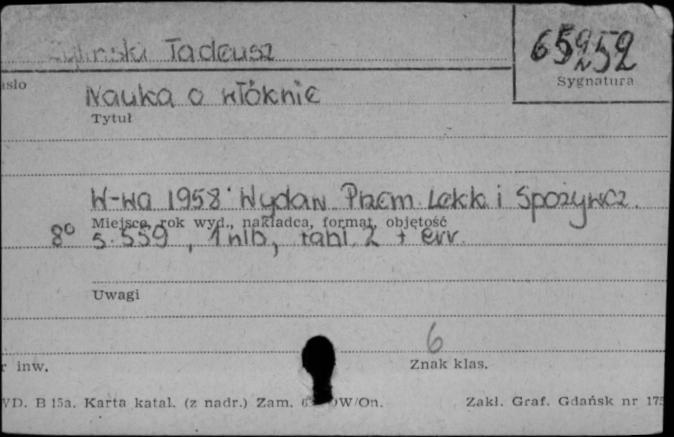 Żyliński Tadeusz
65952
Sygnatura
asło
Nauka o włóknie
Tytuł
W-wa 1958 Wydaw. Przem. Lekk. i Spożywcz.
Miejsce, rok wyd., nakładca, format, objętość
8° s. 559, 1 nlb, tabl. 2 + err.
Uwagi
6
r inw.
Znak klas.
WD. B 15a. Karta katal. (z nadr.) Zam. OW/On.
Zakł. Graf. Gdańsk nr 175